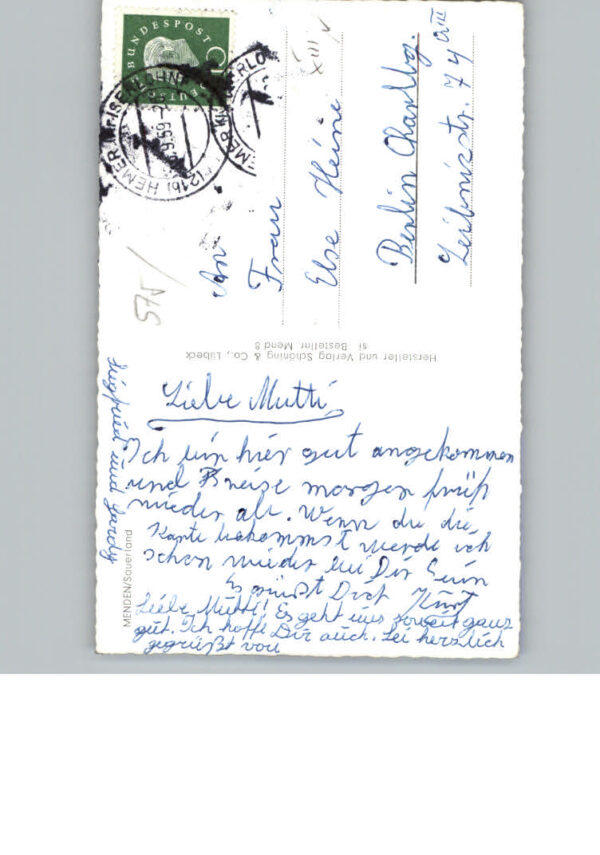 Liebe Mutti
Ich bin hier gut angekommen
und reise morgen früh
wieder ab. Wenn du die
Karte bekommst werde ich
schon wieder bei Dir sein
Es grüßt Dich Kurt
Liebe Mutti! Es geht uns soweit ganz
gut. Ich hoffe Dir auch. Sei herzlich
gegrüßt von
Siegfried und
MENDEN/Sauerland
Hersteller und Verlag Schöning & Co., Lübeck
si Bestellnr. Mend 8
575/
An
Frau
Else Heine
Berlin Charlbg.
Leibnizstr. 74
XIII
DEUTSCHE BUNDESPOST
(21b) HEMER